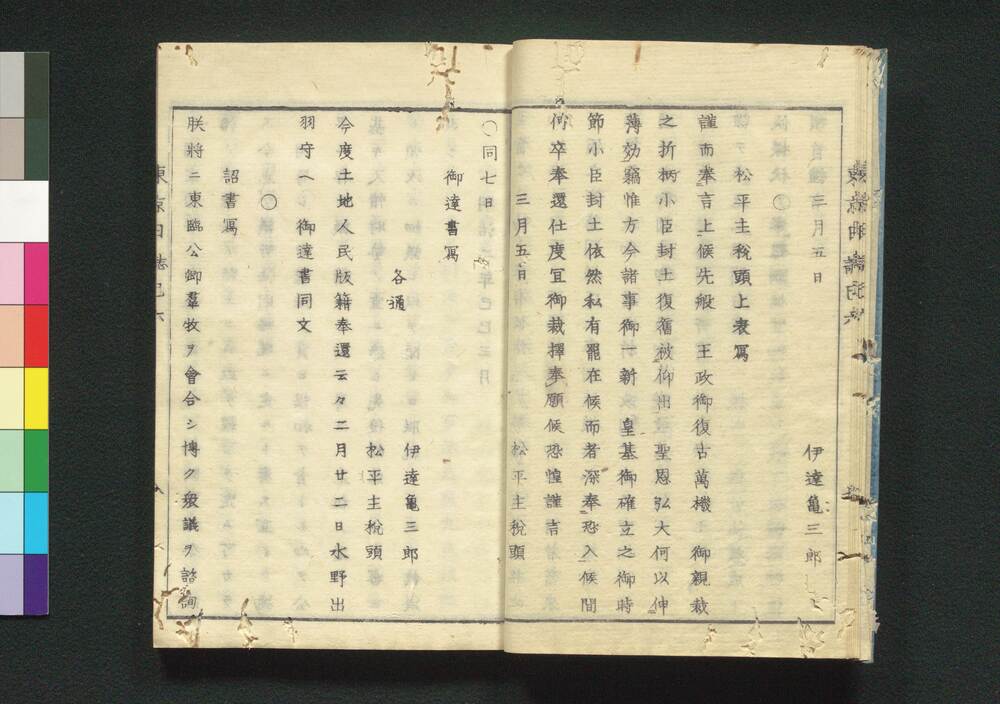 三月五日
伊達亀三郎
〇
松平主税頭上表寫
謹而奉言上候先般　王政御復古萬機　御親裁
之折柄小臣封土復舊被仰出　聖恩弘大何以伸
薄効竊惟方今諸事御新　皇基御確立之御時
節小臣封土依然私有罷在候而者深奉恐入候間
何卒奉還仕度宜御裁擇奉願候恐惶謹言
三月五日
松平主税頭
〇同七日
御達書寫
各通
伊達亀三郎
松平主税頭
今度土地人民版籍奉還云々二月廿二日水野出
羽守へ　御達書同文
〇
詔書寫
朕將ニ東臨公卿羣牧ヲ會合シ博ク衆議ヲ諮詢
東京日誌巳六